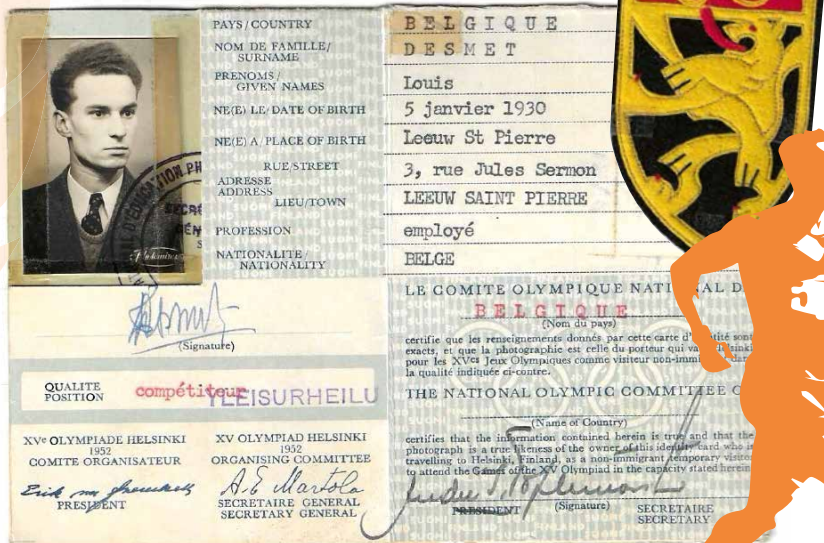 PAYS / COUNTRY
BELGIQUE
NOM DE FAMILLE/
SURNAME
DESMET
PRENOMS /
GIVEN NAMES
Louis
NE(E) LE/DATE OF BIRTH
5 janvier 1930
NE(E) A/PLACE OF BIRTH
Leeuw St Pierre
RUE/STREET
3, rue Jules Sermon
ADRESSE
ADDRESS
LIEU/TOWN
LEEUW SAINT PIERRE
PROFESSION
employé
NATIONALITE/
NATIONALITY
BELGE
(Signature)
QUALITE
POSITION
compétiteur
YLEISURHEILU
XVe OLYMPIADE HELSINKI
1952
COMITE ORGANISATEUR
PRESIDENT
XV OLYMPIAD HELSINKI
1952
ORGANISING COMMITTEE
A.E. Martola
SECRETAIRE GENERAL
SECRETARY GENERAL
LE COMITE OLYMPIQUE NATI NAL D
BELGIQUE
(Nom du pays)
certifie que les renseignements donnés par cette carte d' tité sont
exacts, et que la photographie est celle du porteur qui va lsinki
pour les XVes Jeux Olympiques comme visiteur non-immi dan
la qualité indiquée ci-contre.
THE NATIONAL OLYMPIC COMMITTEE O
(Name of Country)
certifies that the information contained herein is true and that the
photograph is a true likeness of the owner of this identity card who is
travelling to Helsinki, Finland, as a non-immigrant temporary visitor
to attend the Games of the XV Olympiad in the capacity stated herein
PRESIDENT
(Signature)
SECRETAIRE
SECRETARY